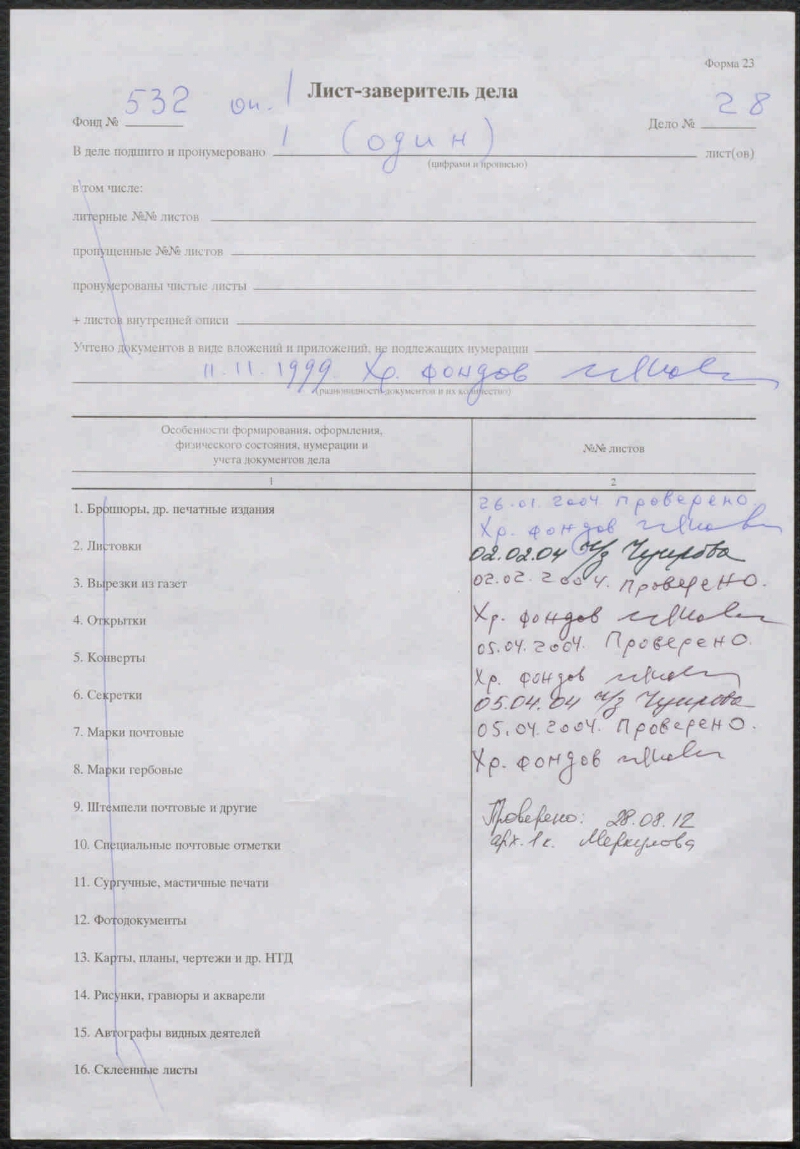 Форма 23
Лист-заверитель дела
Фонд № 532 оп. 1 Дело № 28
В деле подшито и пронумеровано 1 (один) лист(ов)
(цифрами и прописью)
в том числе:
литерные №№ листов
пропущенные №№ листов
пронумерованы чистые листы
+ листов внутренней описи
Учтено документов в виде вложений и приложений, не подлежащих нумерации
11.11.1999 Хр. фондов
(разновидность документов и их количество)
Особенности формирования, оформления, физического состояния, нумерации и учета документов дела
№№ листов
1 2
1. Брошюры, др. печатные издания 26.01.2004 Проверено.
Хр. фондов
2. Листовки 02.02.04
3. Вырезки из газет 02.02.2004. Проверено.
4. Открытки Хр. фондов
05.04.2004. Проверено.
5. Конверты
Хр. фондов
6. Секретки 05.04.04
7. Марки почтовые 05.04.2004. Проверено.
8. Марки гербовые Хр. фондов
9. Штемпели почтовые и другие Проверено: 28.08.12
10. Специальные почтовые отметки арх. 1 к. Меркулова
11. Сургучные, мастичные печати
12. Фотодокументы
13. Карты, планы, чертежи и др. НТД
14. Рисунки, гравюры и акварели
15. Автографы видных деятелей
16. Склеенные листы